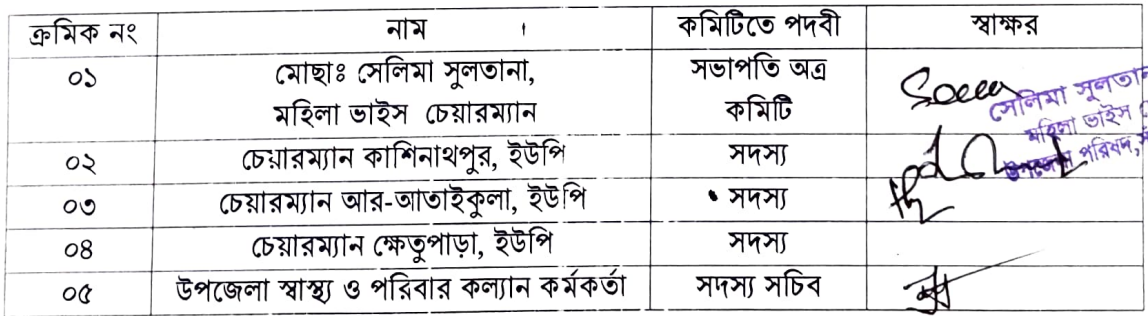 ক্রমিক নং নাম কমিটিতে পদবী স্বাক্ষর
০১ মোছাঃ সেলিমা সুলতানা, সভাপতি অত্র
মহিলা ভাইস চেয়ারম্যান কমিটি
সেলিমা সুলতান
মহিলা ভাইস
উপজেলা পরিষদ,
০২ চেয়ারম্যান কাশিনাথপুর, ইউপি সদস্য
০৩ চেয়ারম্যান আর-আতাইকুলা, ইউপি সদস্য
০৪ চেয়ারম্যান ক্ষেতুপাড়া, ইউপি সদস্য
০৫ উপজেলা স্বাস্থ্য ও পরিবার কল্যান কর্মকর্তা সদস্য সচিব